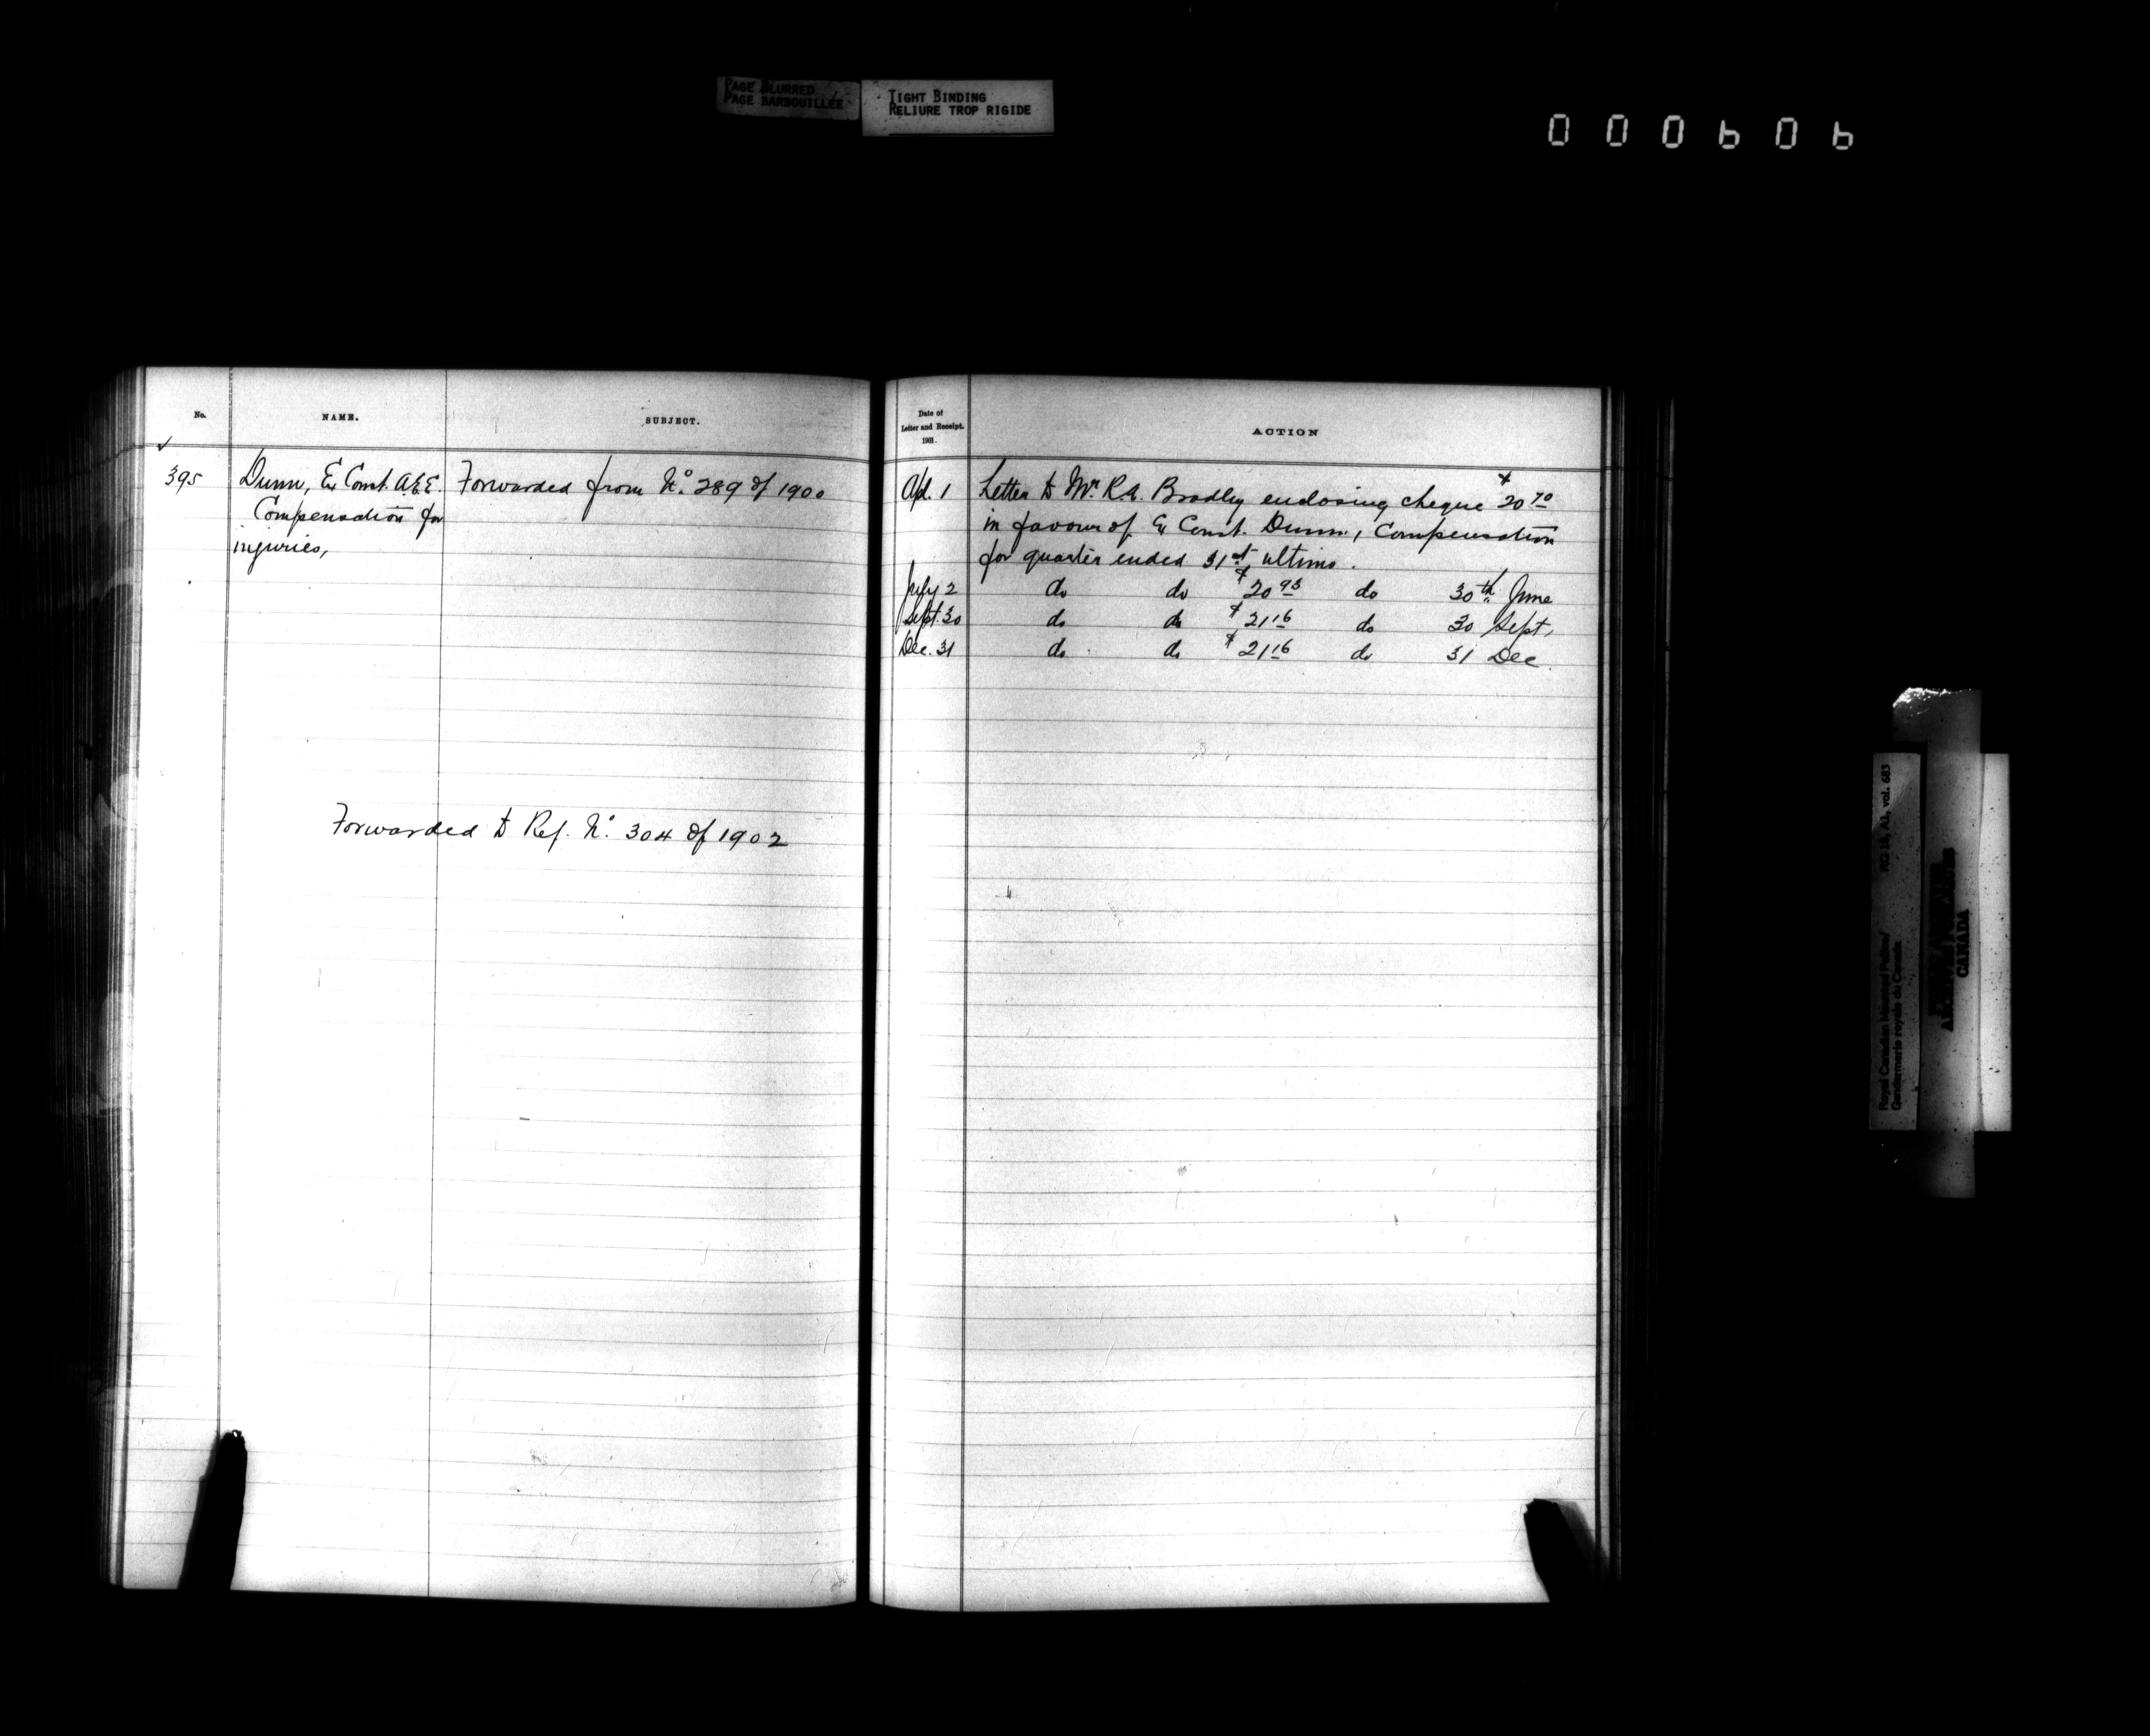 PAGE BLURRED
PAGE BARBOUILLÉE
TIGHT BINDING
RELIURE TROP RIGIDE
000606
No.
NAME.
SUBJECT.
✓
395
Dunn, Ex Const. A.E.E.
Compensation for
injuries,
Forwarded from No. 289 of 1900
Forwarded to Ref. No. 304 of 1902
Date of
Letter and Receipt.
1901.
ACTION
Apl. 1 Letter to Mr. R.A. Bradley enclosing cheque $20 70
in favour of Ex Const. Dunn, Compensation
for quarter ended 31st ultimo.
July 2 do do $20 93 do 30th June
Sept. 30 do do $21 16 do 30 Sept,
Dec. 31 do do $21 16 do 31 Dec.
Royal Canadian Mounted Police/
Gendarmerie royale du Canada
RG 18, A1, vol. 683
CANADA